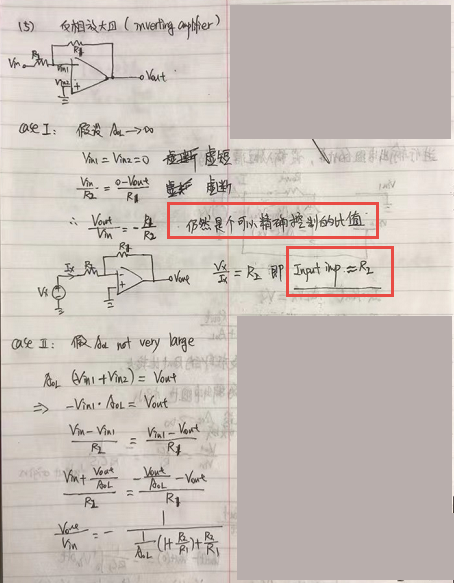 (5) 反相放大器 (inverting amplifier)
R2 R1
Vin Vin1 Vin2 Vout
case I: 假设 AoL → ∞
Vin1 = Vin2 = 0 虚短
Vin/R2 = (0-Vout)/R1 虚断
∴ Vout/Vin = - R1/R2 仍然是个可以精确控制的比值
R1
Ix R2
Vx Vout
Vx/Ix = R2 即 Input imp ≈ R2
case II: 假 AoL not very large
AoL (Vin1+Vin2) = Vout
⇒ -Vin1·AoL = Vout
(Vin-Vin1)/R2 = (Vin1-Vout)/R1
(Vin + Vout/AoL)/R2 = (-Vout/AoL - Vout)/R1
Vout/Vin = - 1/(1/AoL (1+R2/R1)+R2/R1)